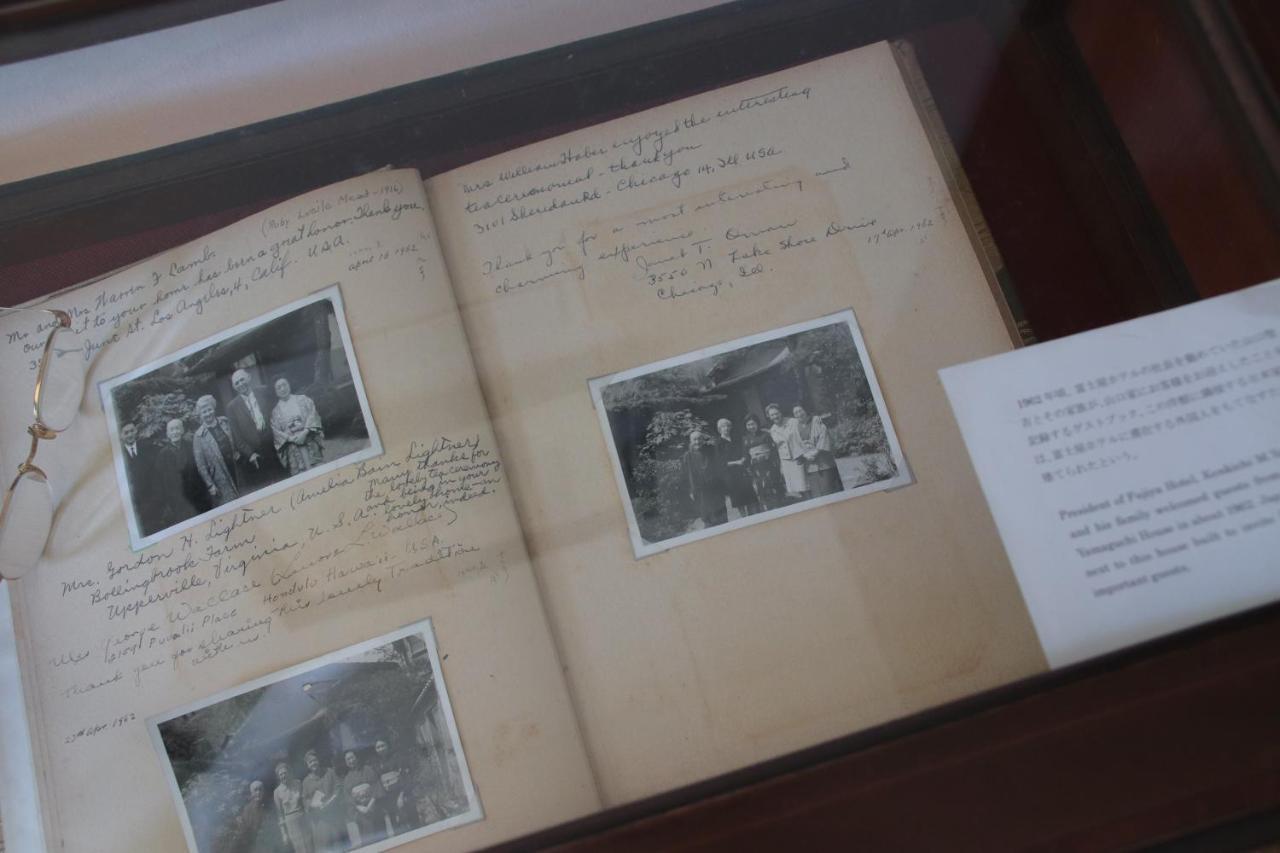 (Ruby Lucile Mead - 1916)
Mr and Mrs Warren F Lamb.
our visit to your home has been a great honor. Thank you.
June St. Los Angeles, 4, Calif. USA.
April 16 1962
Mrs. Gordon H. Lightner (Amelia Bain Lightner)
Bollingbrook Farm
Upperville, Virginia, U.S.A.
Many thanks for
the lovely tea ceremony
and being in your
lovely home - an
honor, indeed.
Mrs George Wallace (Lenore L Wallace)
Puualii Place Honolulu Hawaii - USA.
Thank you for sharing this lovely tradition
with us.
27th Apr. 1962
Mrs William Haber enjoyed the interesting
teaceremonial - thank you
3101 Sheridan Rd - Chicago 14, Ill USA.
Thank you for a most interesting and
charming experience.
Janet T.
3550 N Lake Shore Drive
Chicago, Ill.
17th Apr. 1962
1962年頃、富士屋ホテルの社長を務めていた山口
おとその家族が、山口家にお客様をお迎えしたことを
記録するゲストブック。この洋館に隣接する日本家
は、富士屋ホテルに滞在する外国人をもてなすため
建てられたという。
President of Fujiya Hotel, Kenkichi M. Y
and his family welcomed guests from
Yamaguchi House in about 1962.
next to this house built to invite
important guests.